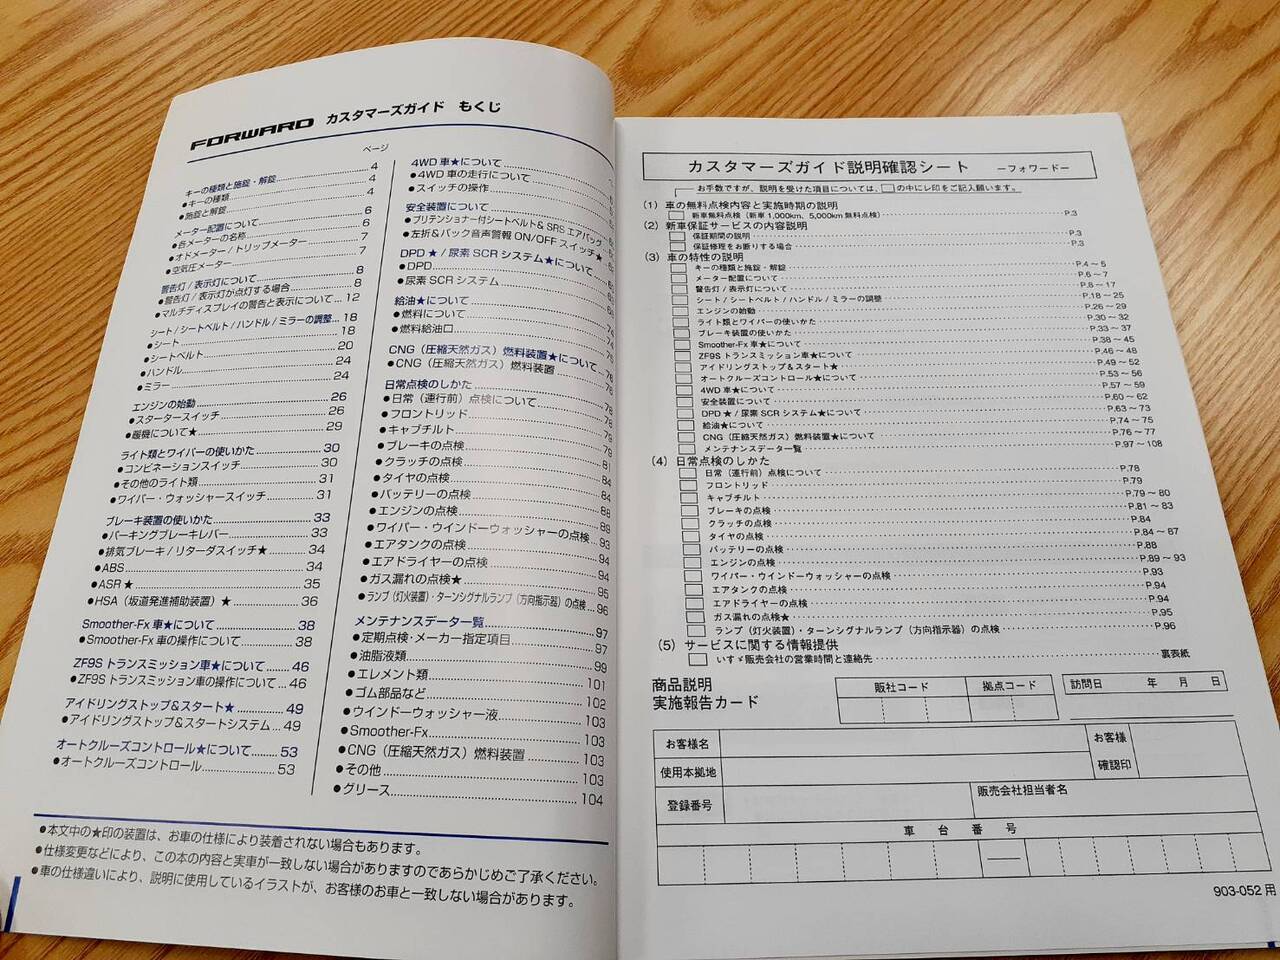 FORWARD カスタマーズガイド もくじ
ページ
キーの種類と施錠・解錠 4
●キーの種類 4
●施錠と解錠 4
メーター配置について 6
●各メーターの名称 6
●オドメーター / トリップメーター 7
●空気圧メーター 7
警告灯 / 表示灯について 8
●警告灯 / 表示灯が点灯する場合 8
●マルチディスプレイの警告と表示について 12
シート / シートベルト / ハンドル / ミラーの調整 18
●シート 18
●シートベルト 20
●ハンドル 24
●ミラー 24
エンジンの始動 26
●スタータースイッチ 26
●暖機について★ 29
ライト類とワイパーの使いかた 30
●コンビネーションスイッチ 30
●その他のライト類 31
●ワイパー・ウォッシャースイッチ 31
ブレーキ装置の使いかた 33
●パーキングブレーキレバー 33
●排気ブレーキ / リターダスイッチ★ 34
●ABS 34
●ASR★ 35
●HSA（坂道発進補助装置）★ 36
Smoother-Fx 車★について 38
●Smoother-Fx 車の操作について 38
ZF9S トランスミッション車★について 46
●ZF9S トランスミッション車の操作について 46
アイドリングストップ＆スタート★ 49
●アイドリングストップ＆スタートシステム 49
オートクルーズコントロール★について 53
●オートクルーズコントロール 53
4WD 車★について
●4WD 車の走行について
●スイッチの操作
安全装置について
●プリテンショナー付シートベルト& SRS エアバッグ
●左折&バック音声警報 ON/OFF スイッチ★
DPD★ / 尿素 SCR システム★について
●DPD
●尿素 SCR システム
給油★について
●燃料について 74
●燃料給油口 75
CNG（圧縮天然ガス）燃料装置★について 76
●CNG（圧縮天然ガス）燃料装置 76
日常点検のしかた 78
●日常（運行前）点検について 78
●フロントリッド 79
●キャブチルト 79
●ブレーキの点検 81
●クラッチの点検 84
●タイヤの点検 84
●バッテリーの点検 88
●エンジンの点検 89
●ワイパー・ウインドーウォッシャーの点検 93
●エアタンクの点検 94
●エアドライヤーの点検 94
●ガス漏れの点検★ 95
●ランプ（灯火装置）・ターンシグナルランプ（方向指示器）の点検 96
メンテナンスデータ一覧 97
●定期点検・メーカー指定項目 97
●油脂液類 99
●エレメント類 101
●ゴム部品など 102
●ウインドーウォッシャー液 103
●Smoother-Fx 103
●CNG（圧縮天然ガス）燃料装置 103
●その他 103
●グリース 104
●本文中の★印の装置は、お車の仕様により装着されない場合もあります。
●仕様変更などにより、この本の内容と実車が一致しない場合がありますのであらかじめご了承ください。
●車の仕様違いにより、説明に使用しているイラストが、お客様のお車と一致しない場合があります。
カスタマーズガイド説明確認シート －フォワード－
お手数ですが、説明を受けた項目については、□の中にレ印をご記入願います。
（1）車の無料点検内容と実施時期の説明
□ 新車無料点検（新車1,000km、5,000km 無料点検） P.3
（2）新車保証サービスの内容説明
□ 保証期間の説明 P.3
□ 保証修理をお断りする場合 P.3
（3）車の特性の説明
□ キーの種類と施錠・解錠 P.4～5
□ メーター配置について P.6～7
□ 警告灯 / 表示灯について P.8～17
□ シート / シートベルト / ハンドル / ミラーの調整 P.18～25
□ エンジンの始動 P.26～29
□ ライト類とワイパーの使いかた P.30～32
□ ブレーキ装置の使いかた P.33～37
□ Smoother-Fx 車★について P.38～45
□ ZF9S トランスミッション車★について P.46～48
□ アイドリングストップ＆スタート★ P.49～52
□ オートクルーズコントロール★について P.53～56
□ 4WD 車★について P.57～59
□ 安全装置について P.60～62
□ DPD★ / 尿素 SCR システム★について P.63～73
□ 給油★について P.74～75
□ CNG（圧縮天然ガス）燃料装置★について P.76～77
□ メンテナンスデータ一覧 P.97～108
（4）日常点検のしかた
□ 日常（運行前）点検について P.78
□ フロントリッド P.79
□ キャブチルト P.79～80
□ ブレーキの点検 P.81～83
□ クラッチの点検 P.84
□ タイヤの点検 P.84～87
□ バッテリーの点検 P.88
□ エンジンの点検 P.89～93
□ ワイパー・ウインドーウォッシャーの点検 P.93
□ エアタンクの点検 P.94
□ エアドライヤーの点検 P.94
□ ガス漏れの点検★ P.95
□ ランプ（灯火装置）・ターンシグナルランプ（方向指示器）の点検 P.96
（5）サービスに関する情報提供
□ いすゞ販売会社の営業時間と連絡先 裏表紙
商品説明
実施報告カード
販社コード 拠点コード
訪問日 年 月 日
お客様名
お客様
確認印
使用本拠地
登録番号
販売会社担当者名
車台番号
903-052 用